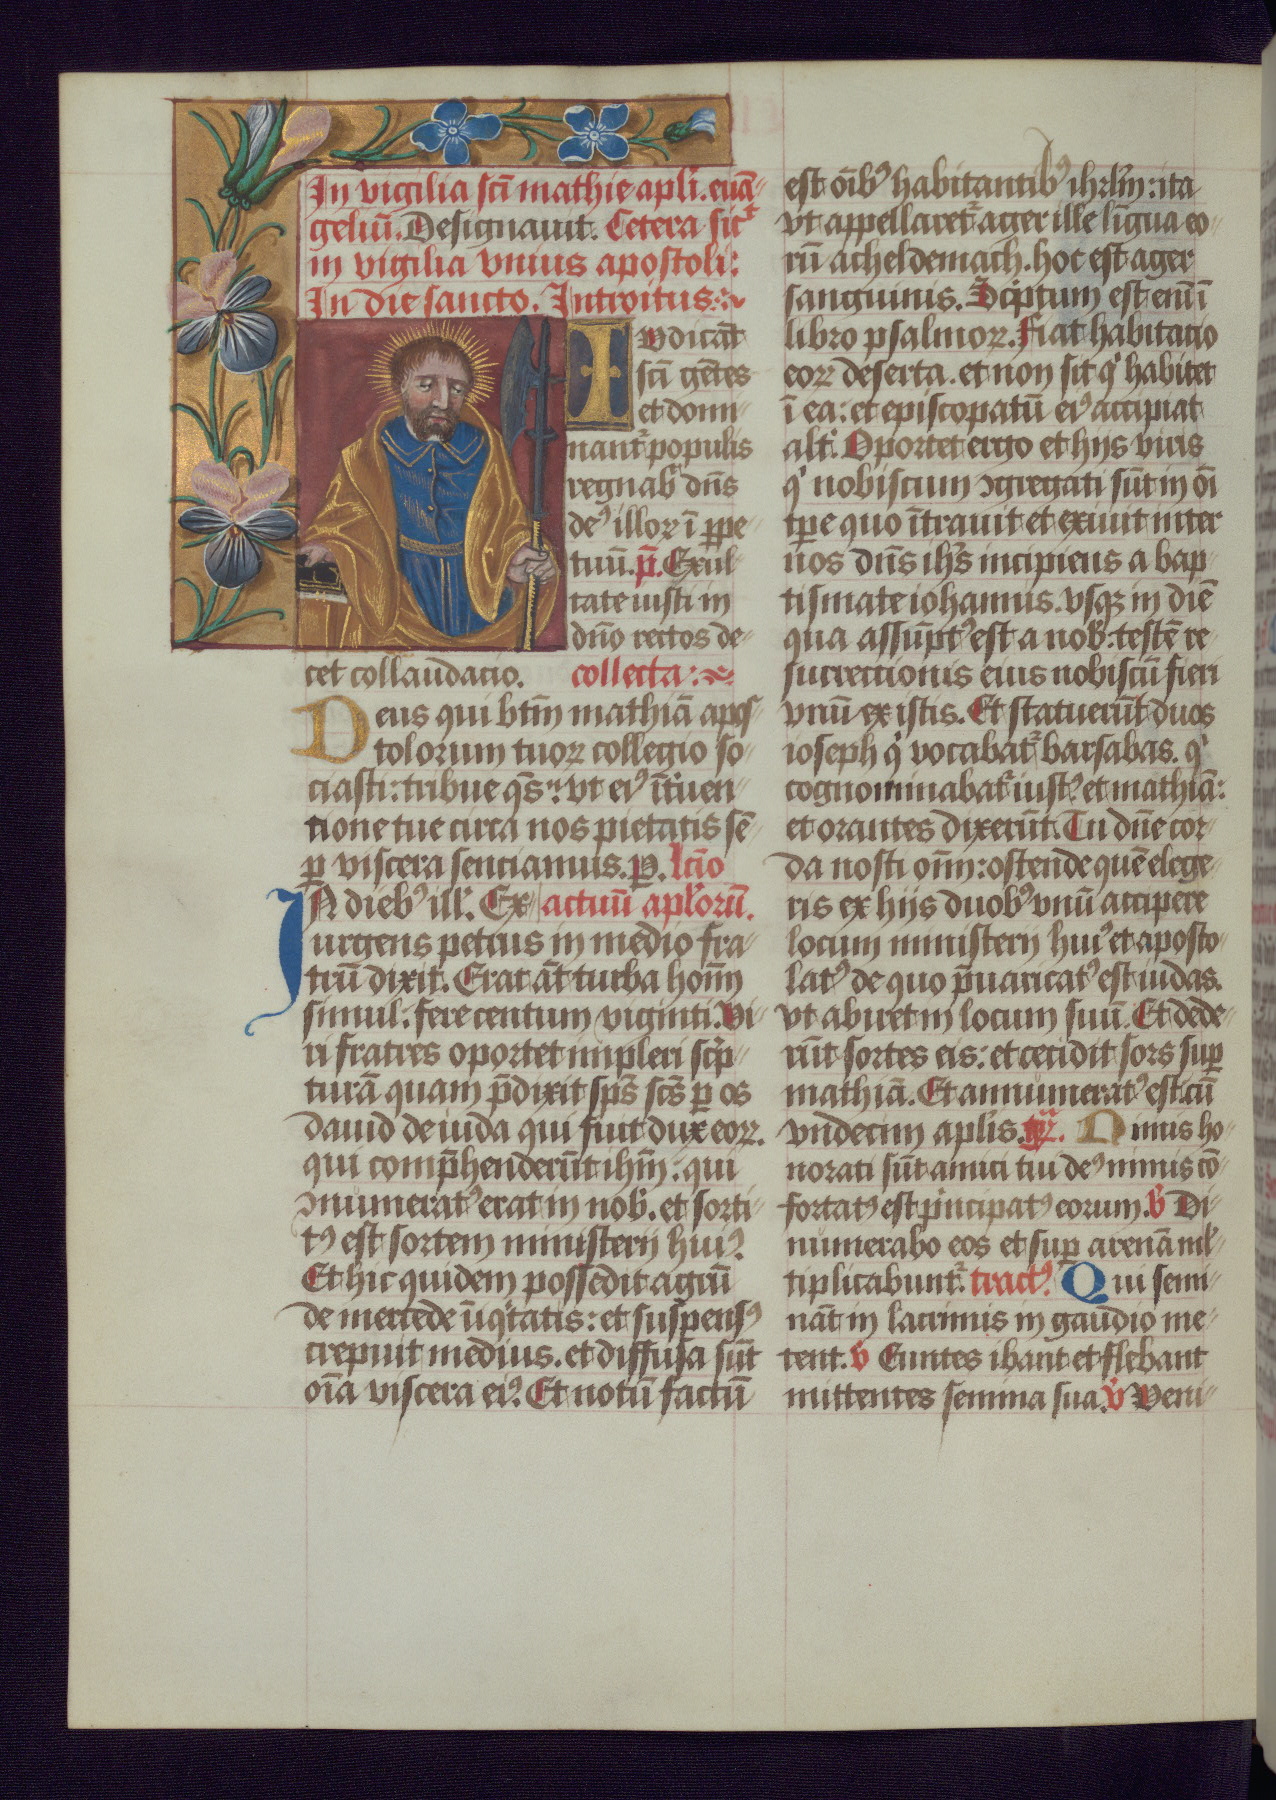 In vigilia sc̄i mathie apl̄i. euā-
geliū. Designauit. Cetera sic̄
in vigilia vnius apostoli:
In die sancto. Introitus:
I vdicāt
sc̄i gētes
et domi-
nant᷑ populis
regnab̄ dn̄s
deꝰ illoꝝ ī ꝑpe-
tuū. p̄. Exul-
tate iusti in
dn̄o rectos de-
cet collaudacio. collecta:
Deus qui btm̄ mathiā apos-
tolorum tuoꝝ collegio so-
ciasti: tribue q̄s: vt eiꝰ īt᷑uen-
tione tue circa nos pietatis sē-
ꝑ viscera senciamus. P. lc̄io
IN diebꝰ ill̄. Ex- actuū apl̄orū.
urgens petrus in medio fra-
trū dixit. Erat āt turba hoīm
simul: fere centum viginti. Vi-
ri fratres oportet impleri sc̄p-
turā quam p̄dixit sp̄s sc̄s ꝑ os
dauid de iuda qui fuit dux eoꝝ.
qui comp̄henderūt ihm̄: qui
ↄnumeratꝰ erat in nob̄. et sorti-
tꝰ est sortem ministerij huiꝰ.
Et hic quidem possedit agrū
de mercede īiq᷑tatis: et suspensꝰ
crepuit medius. et diffusa sūt
oīa viscera eiꝰ. Et notū factū
est oībꝰ habitantibꝰ ihrlm̄: ita
vt appellaret᷑ ager ille lingua eo-
rū acheldemach. hoc est ager
sanguinis. Sc̄ptum est enī ī
libro psalmoꝝ. Fiat habitacio
eoꝝ deserta. et non sit qͥ habitet
ī ea: et episcopatū eiꝰ accipiat
alt᷑. Oportet ergo et hijs viris
qͥ nobiscum ↄgregati sūt in oī
tꝑe quo ītrauit et exiuit inter
nos dn̄s ihs̄ incipiens a bap-
tismate iohannis. vsqꝫ in diē
qua assūptꝰ est a nob̄: testē re-
surrectionis eius nobiscū fieri
vnū ex istis. Et statuerūt duos
ioseph qͥ vocabat᷑ barsabas. qͥ
cognominabat᷑ iustꝰ et mathiā:
et orantes dixerūt. Tu dn̄e cor-
da nosti oīm: ostende quē elege-
ris ex hijs duobꝰ vnū accipere
locum ministerij huiꝰ et aposto-
latꝰ de quo p̄uaricatꝰ est iudas.
vt abiret in locum suū. Et dede-
rūt sortes eis: et cecidit sors suꝑ
mathiā. Et annumeratꝰ est cū
vndecim apl̄is. gr̄. Nimis ho-
norati sūt amici tui deꝰ nimis cō-
fortatꝰ est p᷑ncipatꝰ eorum. v̄ Di-
numerabo eos et suꝑ arenā ml̄-
tiplicabunt᷑. tractꝰ Qui semi-
nāt in lacrimis in gaudio me-
tent. v̄ Euntes ibant et flebant
mittentes semina sua. v̄ Veni-